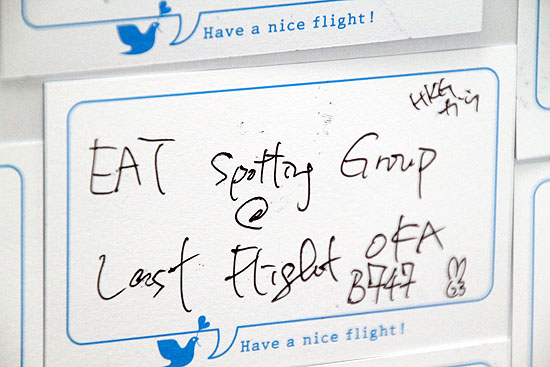 Have a nice flight!
HKG
から
EAT Spotting Group
@
Last Flight OKA
B747
Have a nice flight!